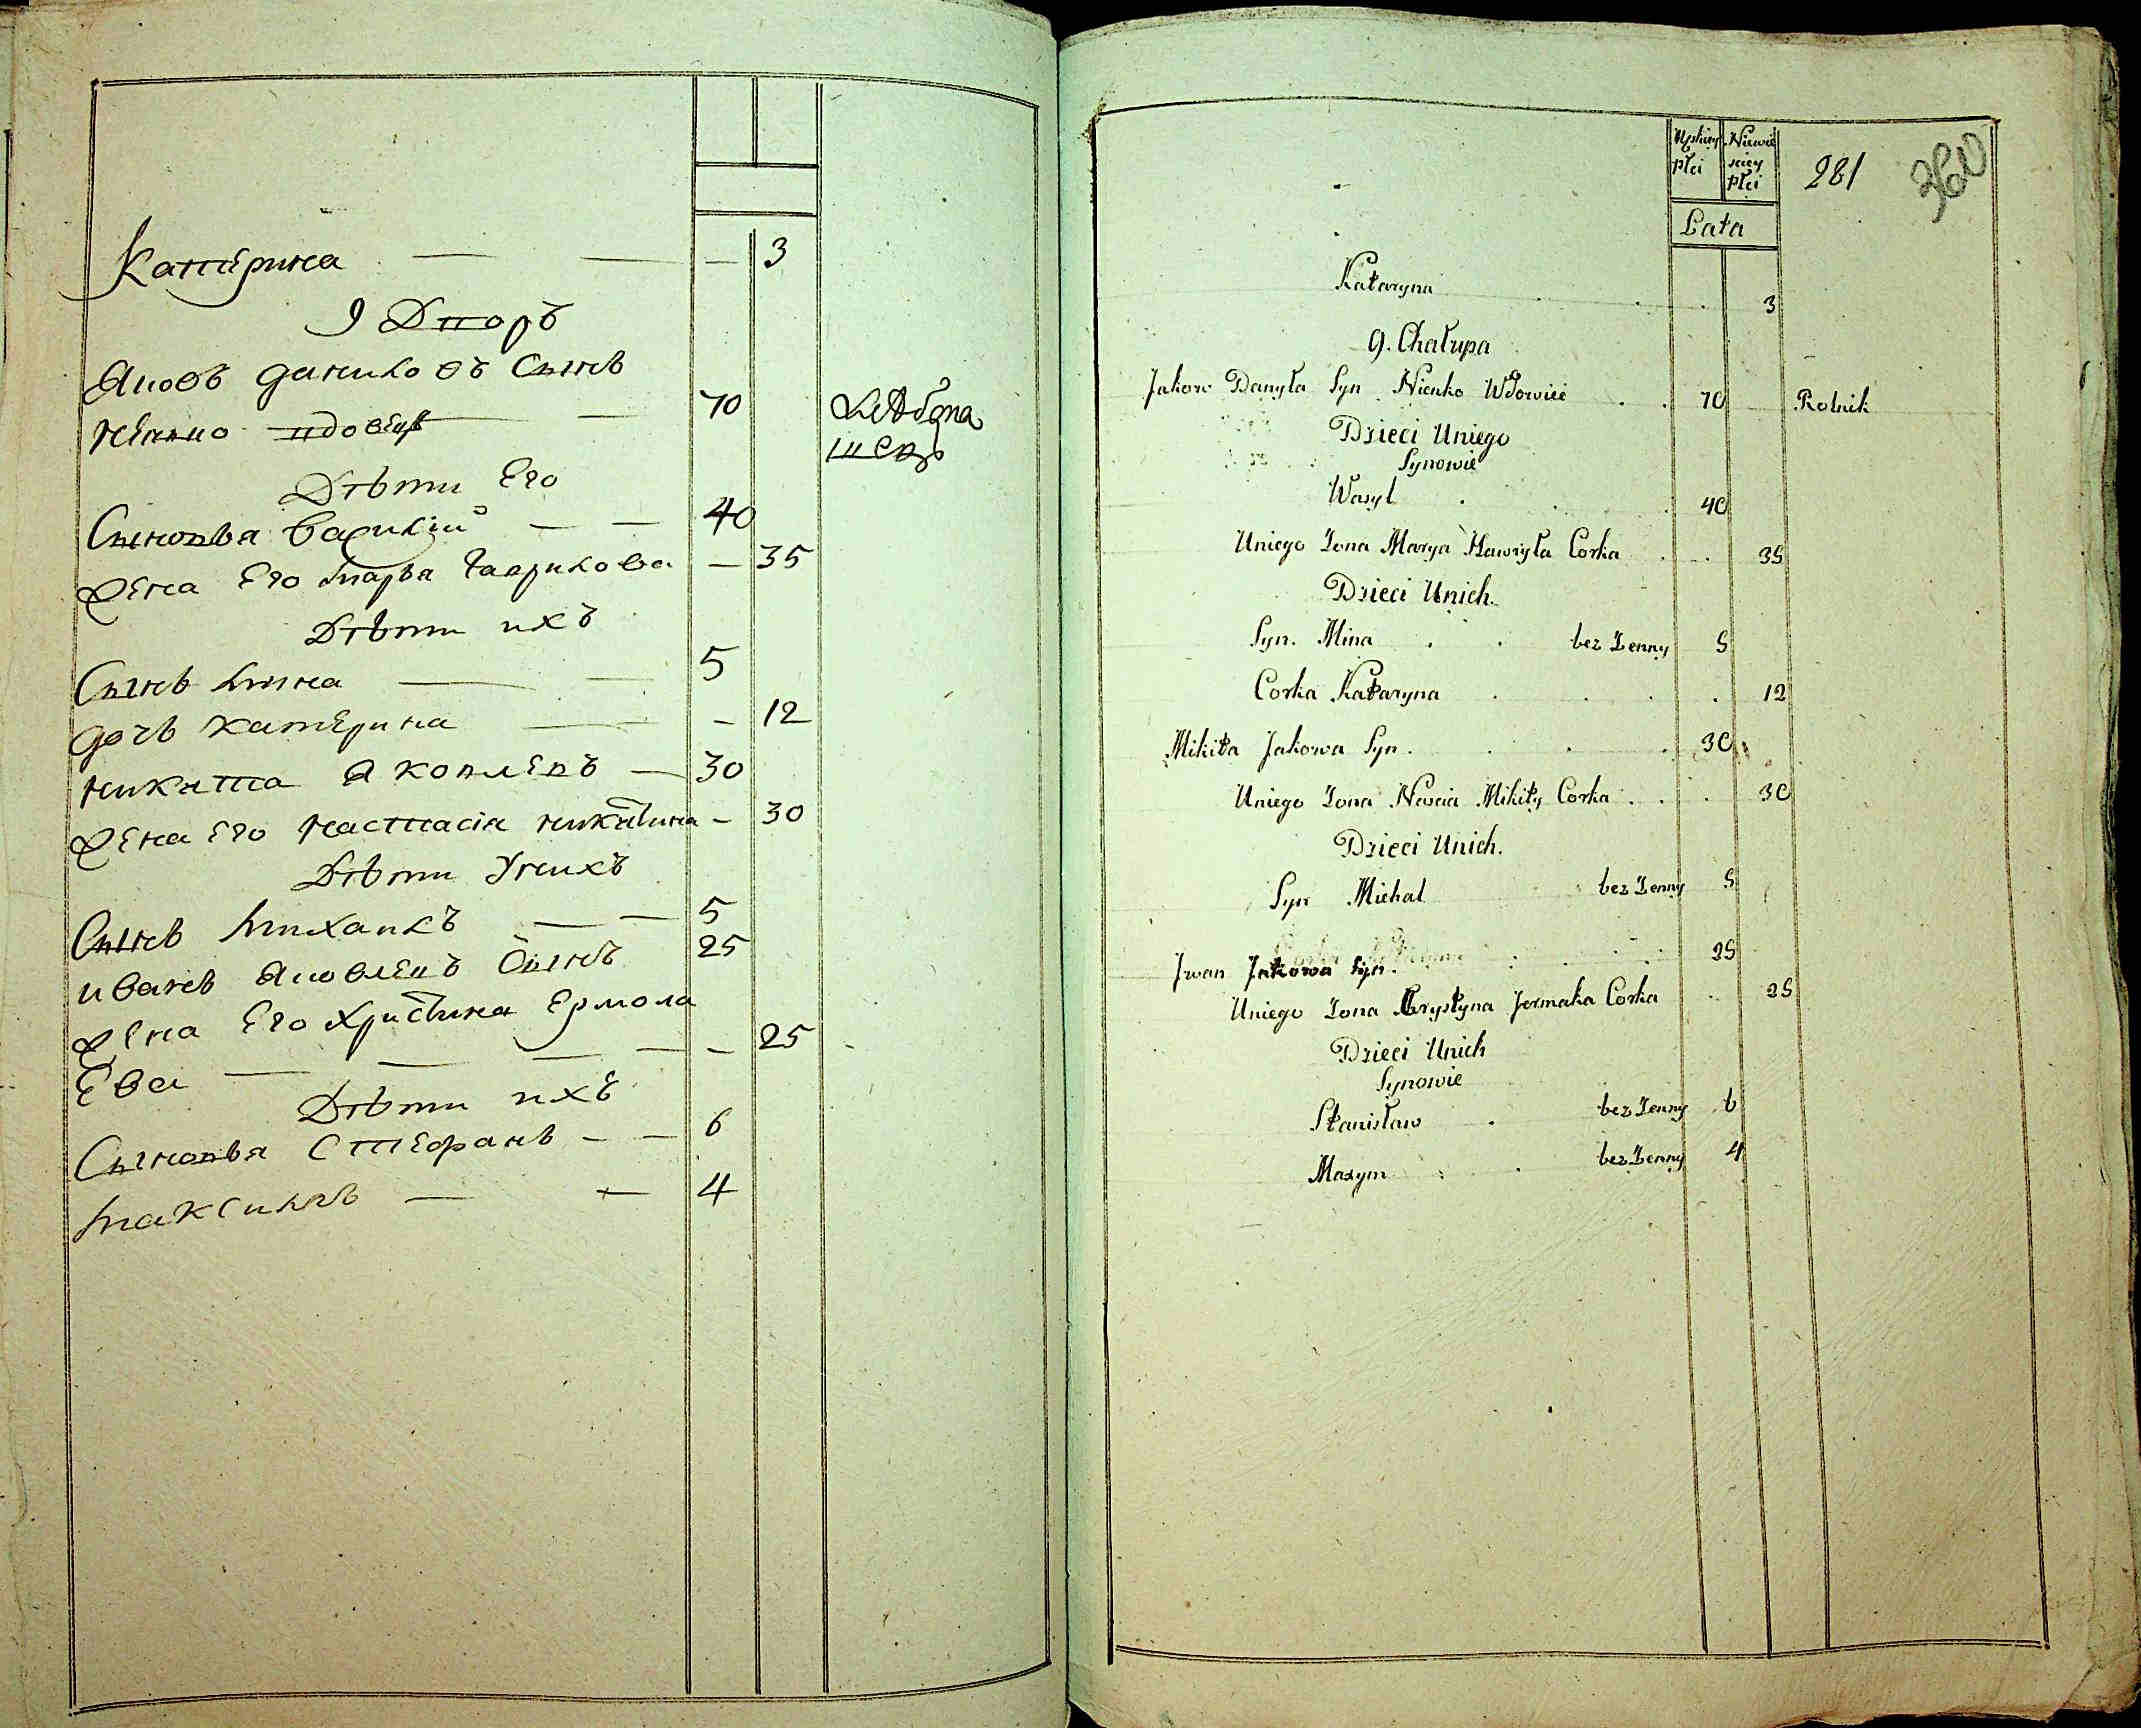 Катерина — — — 3
9 Дворъ
Яковъ Даниловъ Сынъ
70
Дѣти Его
Сыновья Василій — — 40
Жена Его Марья Гаврилова — 35
Дѣти ихъ
Сынъ Мина — — 5
дочь Катерина — — 12
Никита Яковлевъ — 30
Жена Его Настасія Никитина — 30
Дѣти Унихъ
Сынъ Михаилъ — — 5
Иванъ Яковлевъ Сынъ 25
Жена Его Христина Ермола
Ева — — — — — 25
Дѣти ихъ
Сыновья Стефанъ — — 6
Максимъ — — 4
Męskiey płci Niewiesciey płci 281 360
Lata
Kataryna 3
9. Chałupa
Jakow Danyła Syn Nienko Wdowiec 70 Rolnik
Dzieci Uniego
Synowie
Wasyl 40
Uniego Zona Marya Hawryła Corka 35
Dzieci Unich.
Syn. Mina bez Zenny 5
Corka Kataryna 12
Mikita Jakowa Syn. 30
Uniego Zona Mikity Corka 30
Dzieci Unich.
Syn Michal bez Zenny 5
Jwan Jakowa Syn. 25
Uniego Zona Krystyna Jermaka Corka 25
Dzieci Unich
Synowie
Stanisław bez Zenny 6
Maxym bez Zenny 4